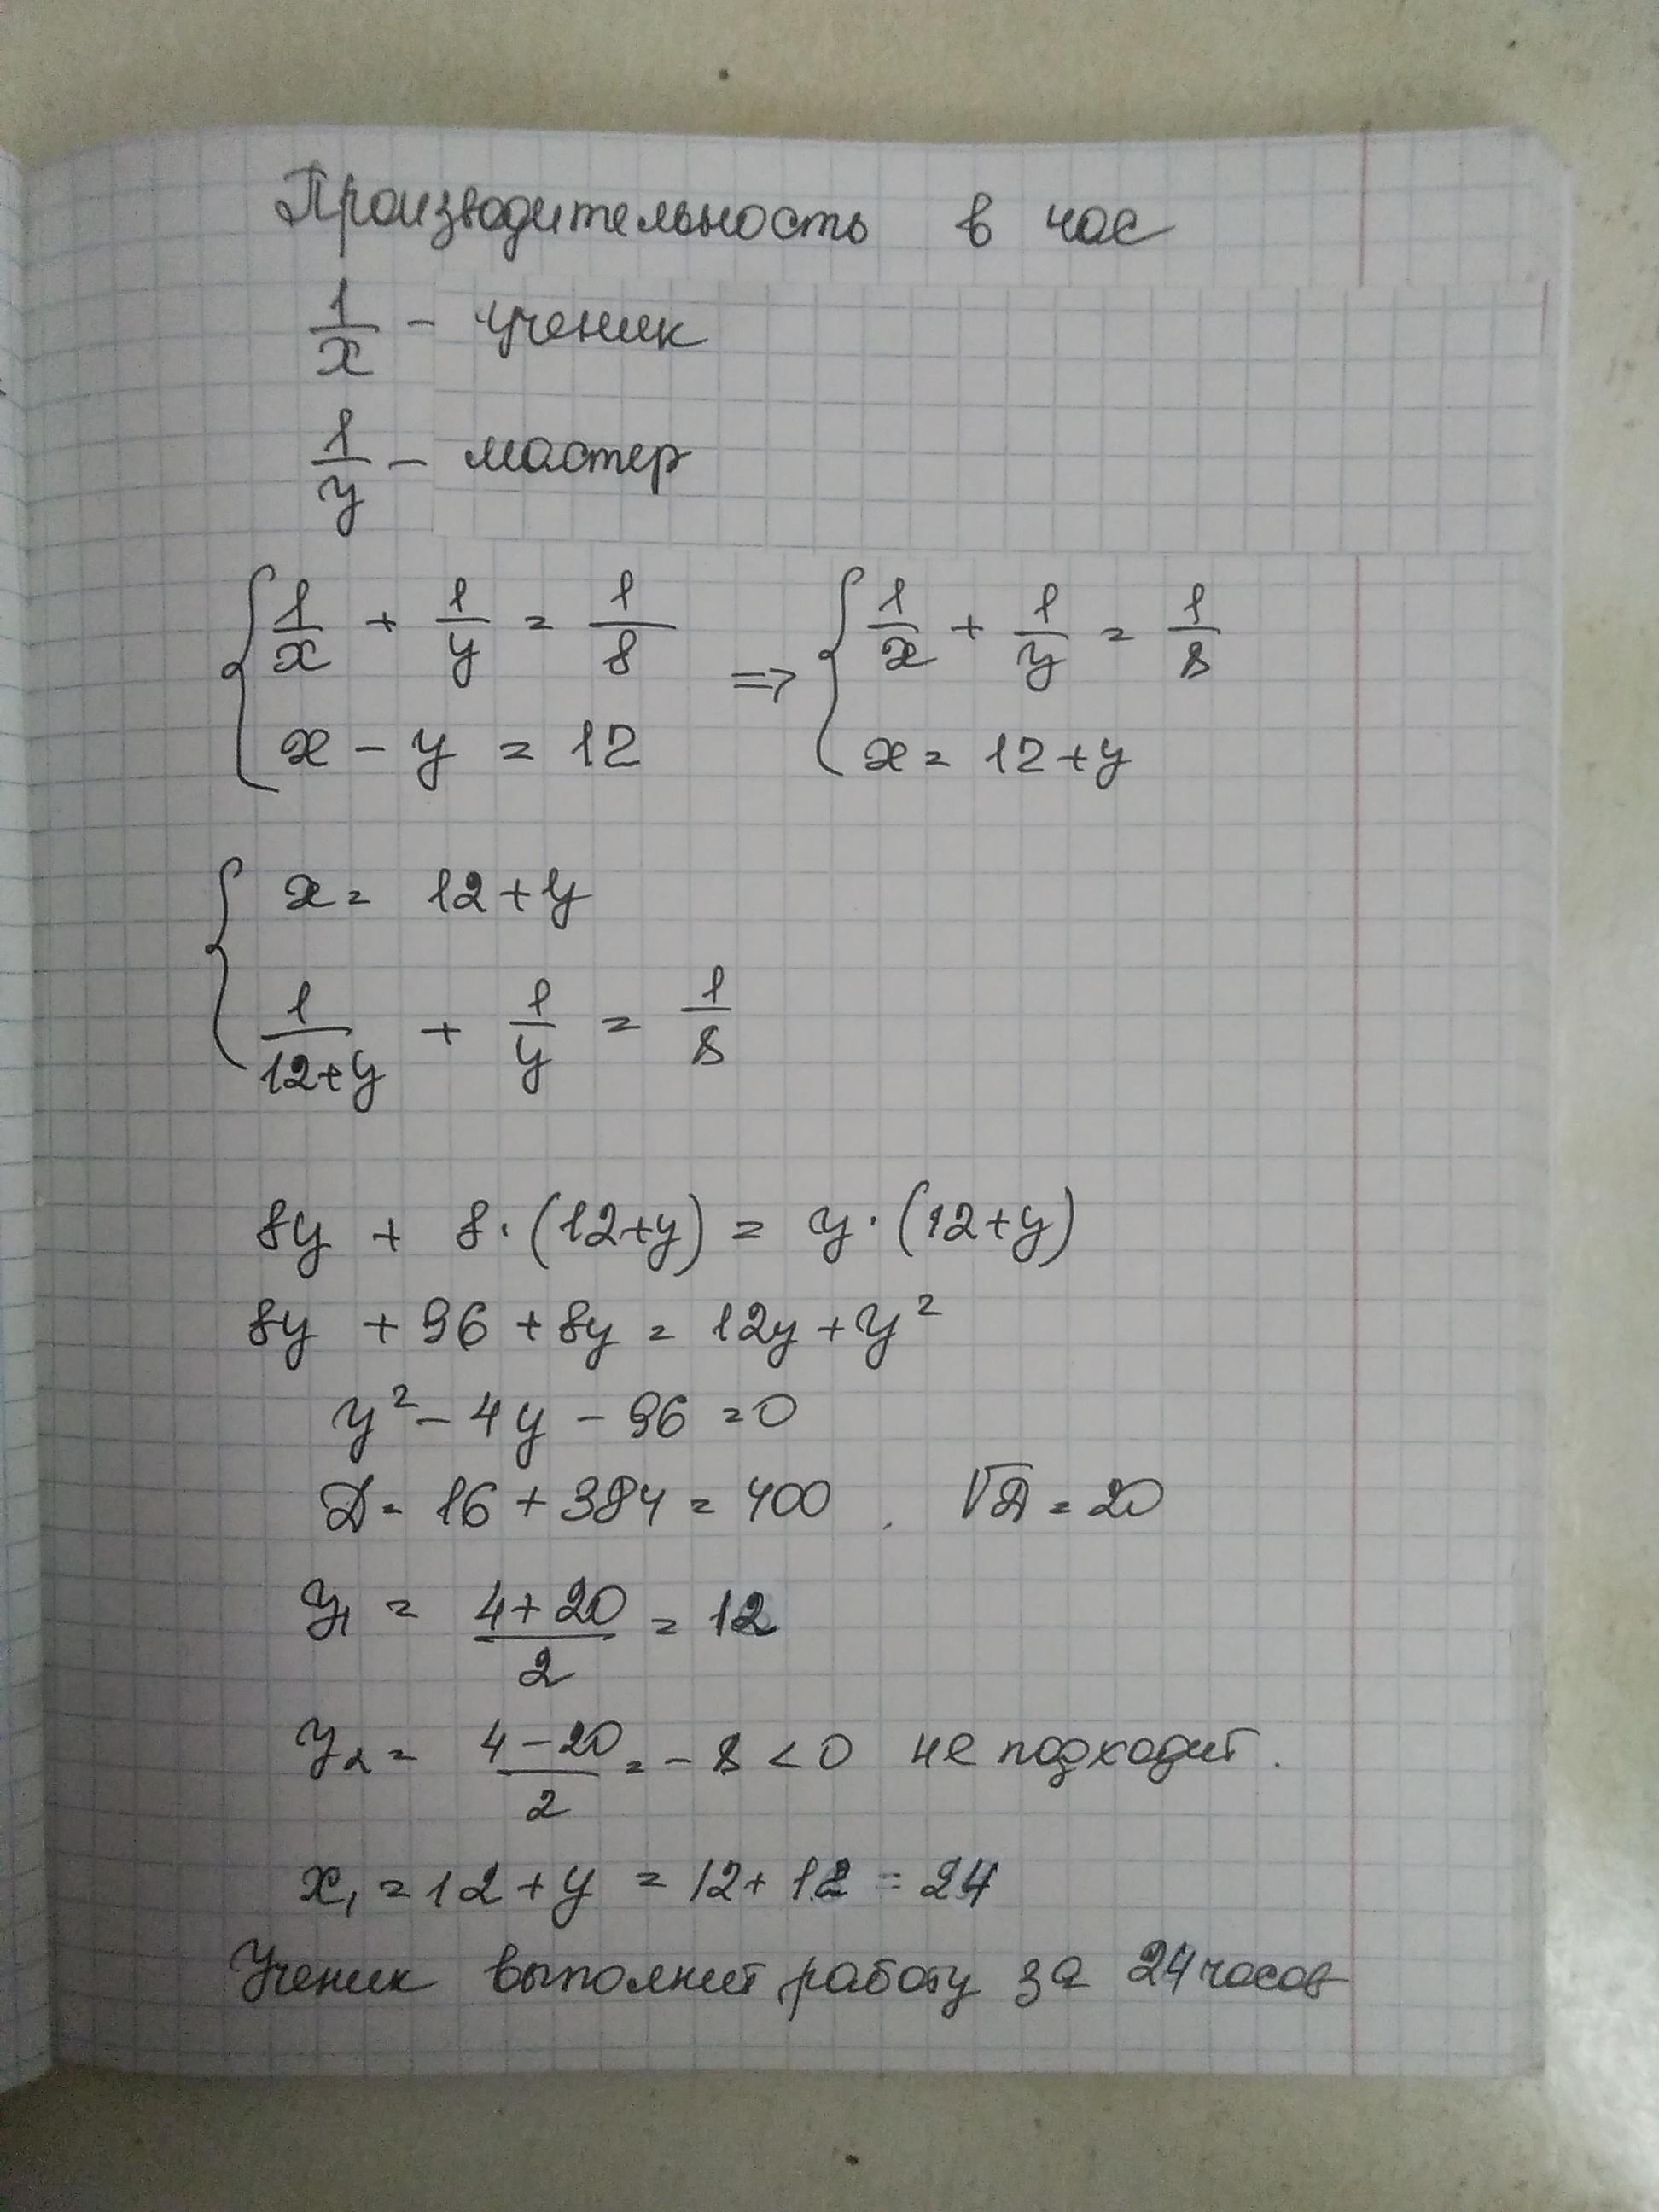 Производительность в час
1/x - ученик
1/y - мастер
{ 1/x + 1/y = 1/8 => { 1/x + 1/y = 1/8
x - y = 12 x = 12 + y
{ x = 12 + y
1/(12+y) + 1/y = 1/8
8y + 8·(12+y) = y·(12+y)
8y + 96 + 8y = 12y + y²
y² - 4y - 96 = 0
Д = 16 + 384 = 400 . √Д = 20
y₁ = (4+20)/2 = 12
y₂ = (4-20)/2 = -8 < 0 не подходит.
x₁ = 12 + y = 12 + 12 = 24
Ученик выполнит работу за 24 часов